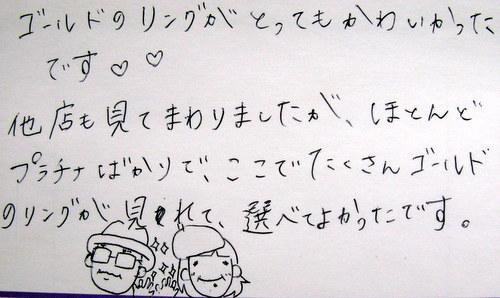 ゴールドのリングがとってもかわいかった
です♡♡
他店も見てまわりましたが、ほとんど
プラチナばかりで、ここでたくさんゴールド
のリングが見れて、選べてよかったです。